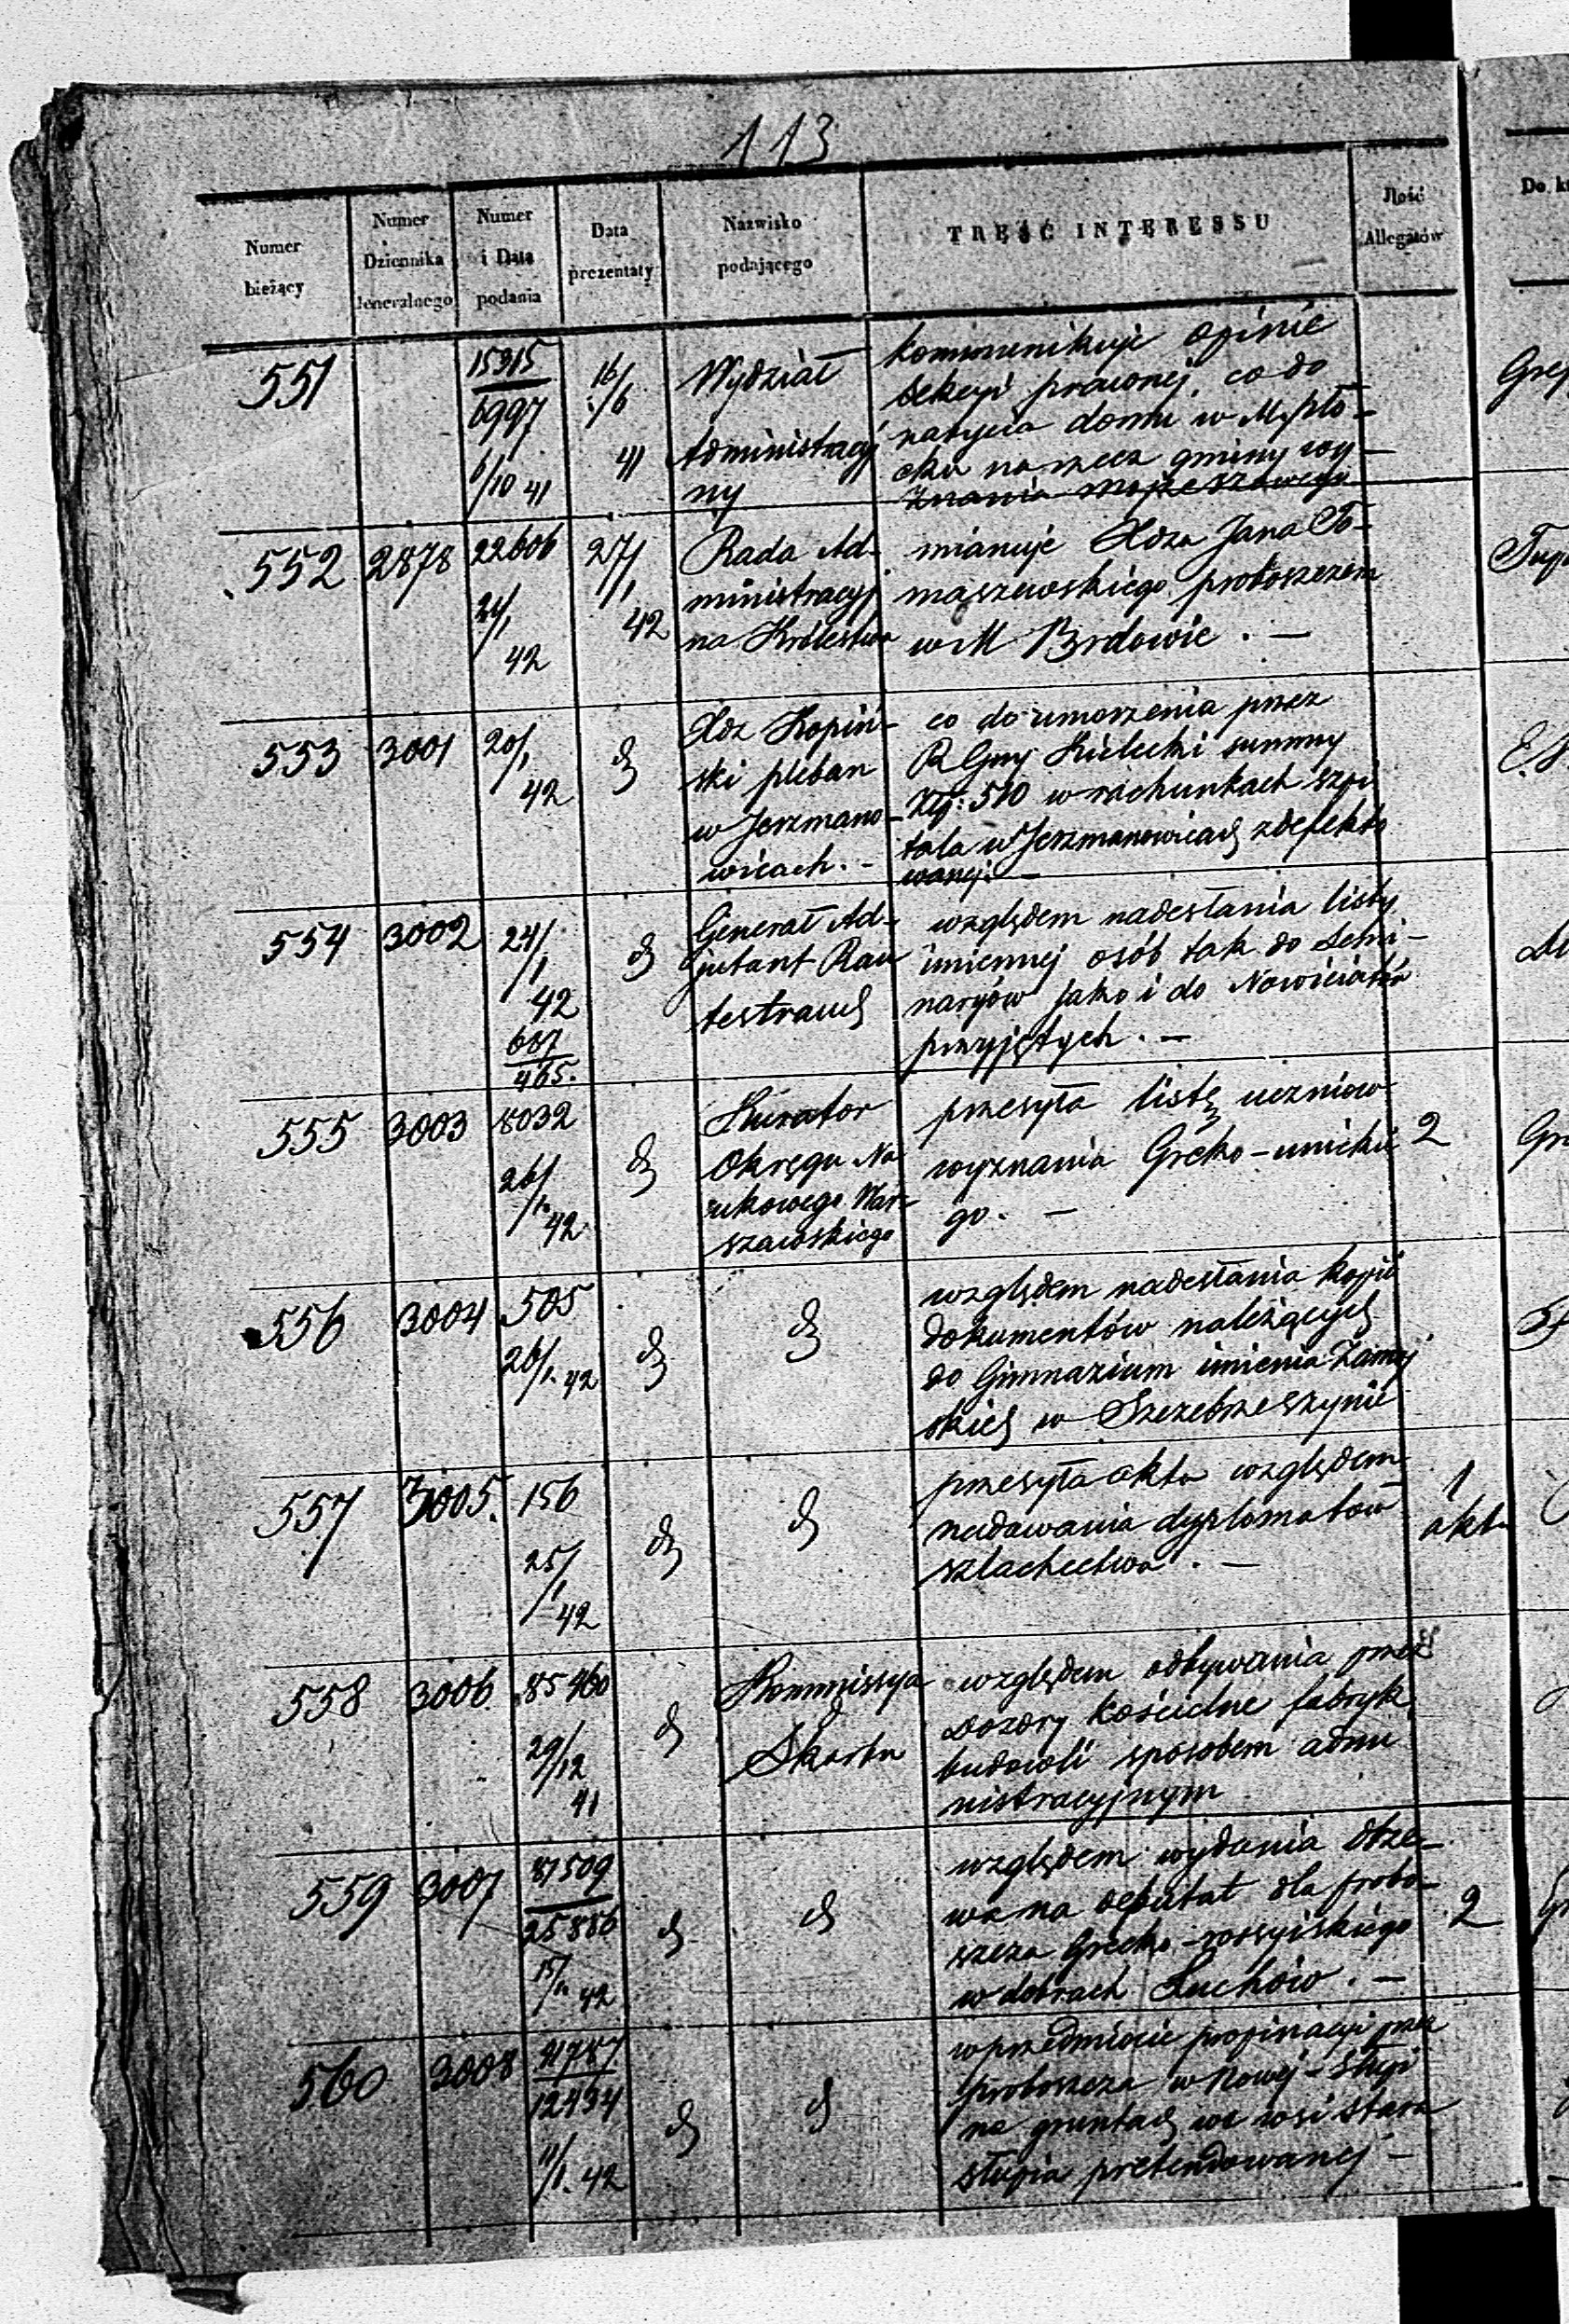 113
Numer bieżący
Numer Dziennika Jeneralnego
Numer i Data podania
Data prezentaty
Nazwisko podającego
TREŚĆ INTERESSU
Jlość Allegatów
551
15315
6997
6/10 41
16/6
41
Wydział
Administracyj
ny
kommunikuje opinie
Sekcyi prawnej co do
nabycia domu w M. Pło-
cku na rzecz gminy wy-
znania mojżeszowego
552
2878
22606
24/1
42
27/1
42
Rada Ad-
ministracyj
na Królestwa
mianuje Xdza Jana To-
maszewskiego proboszczem
w M Brdowie . —
553
3001
20/1
42
d
Xdz Kopiń-
ski pleban
w Jerzmano-
wicach. -
co do umorzenia przez
R Gny Kielecki summy
Złp: 510 w rachunkach szpi
tala w Jerzmanowicach zdefekto
wanej. —
554
3002
24/1
42
687
465.
d
Generał Ad-
jutant Rau
testrauch
względem nadesłania listy
imiennej osób tak do Semi-
naryów jako i do Nowiciatów
przyjętych . —
555
3003
8032
26/1.
42
d
Kurator
Okręgu Na
ukowego War-
szawskiego
przesyła listę uczniow
wyznania Grecko-unickie
go. —
2
556
3004
505
26/1. 42
d
d
względem nadesłania kopii
dokumentów należących
do Gimnazium imienia Zamoj
skich w Szczebrzeszynie
557
3005.
156
25/1
42
d
d
przesyła akta względem
nadawania dyplomatów
szlachectwa . —
1
akt
558
3006.
85460
29/12
41
d
Kommissya
Skarbu
względem odbywania przez
Dozory kościelne fabryk
budowli sposobem admi
nistracyjnym
559
3007
87509
25886
15/1. 42
d
d
względem wydania drze-
wa na deputat dla probo-
szcza Grecko-rossyiskiego
w dobrach Łuchów . —
2
560
3008
91787
12434
11/1. 42
d
d
w przedmiocie propinacyi przez
proboszcza w Nowej-Słupi
na gruntach we wsi Stara
Słupia pretendowanej —